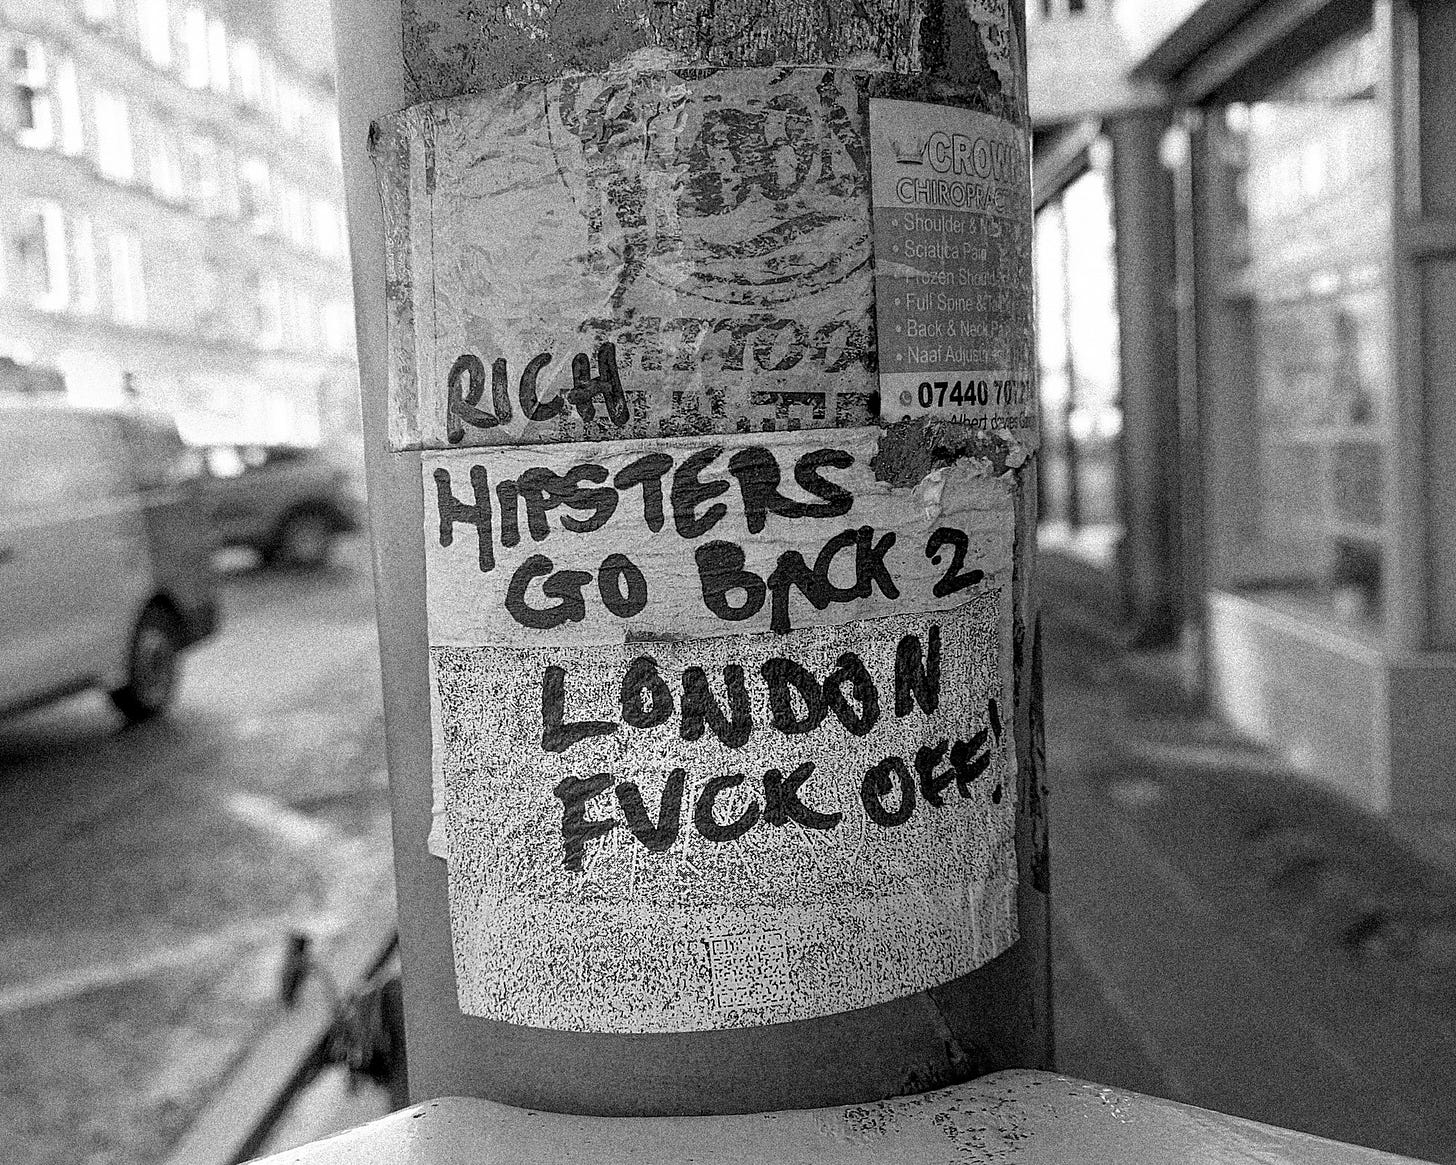 CROWN
CHIROPRAC
• Shoulder & N
• Sciatica Pain
• Frozen Should
• Full Spine &
• Back & Neck Pa
• Naaf Adjus
07440 70
TATTOO
RICH
HIPSTERS
GO BACK 2
LONDON
FUCK OFF!